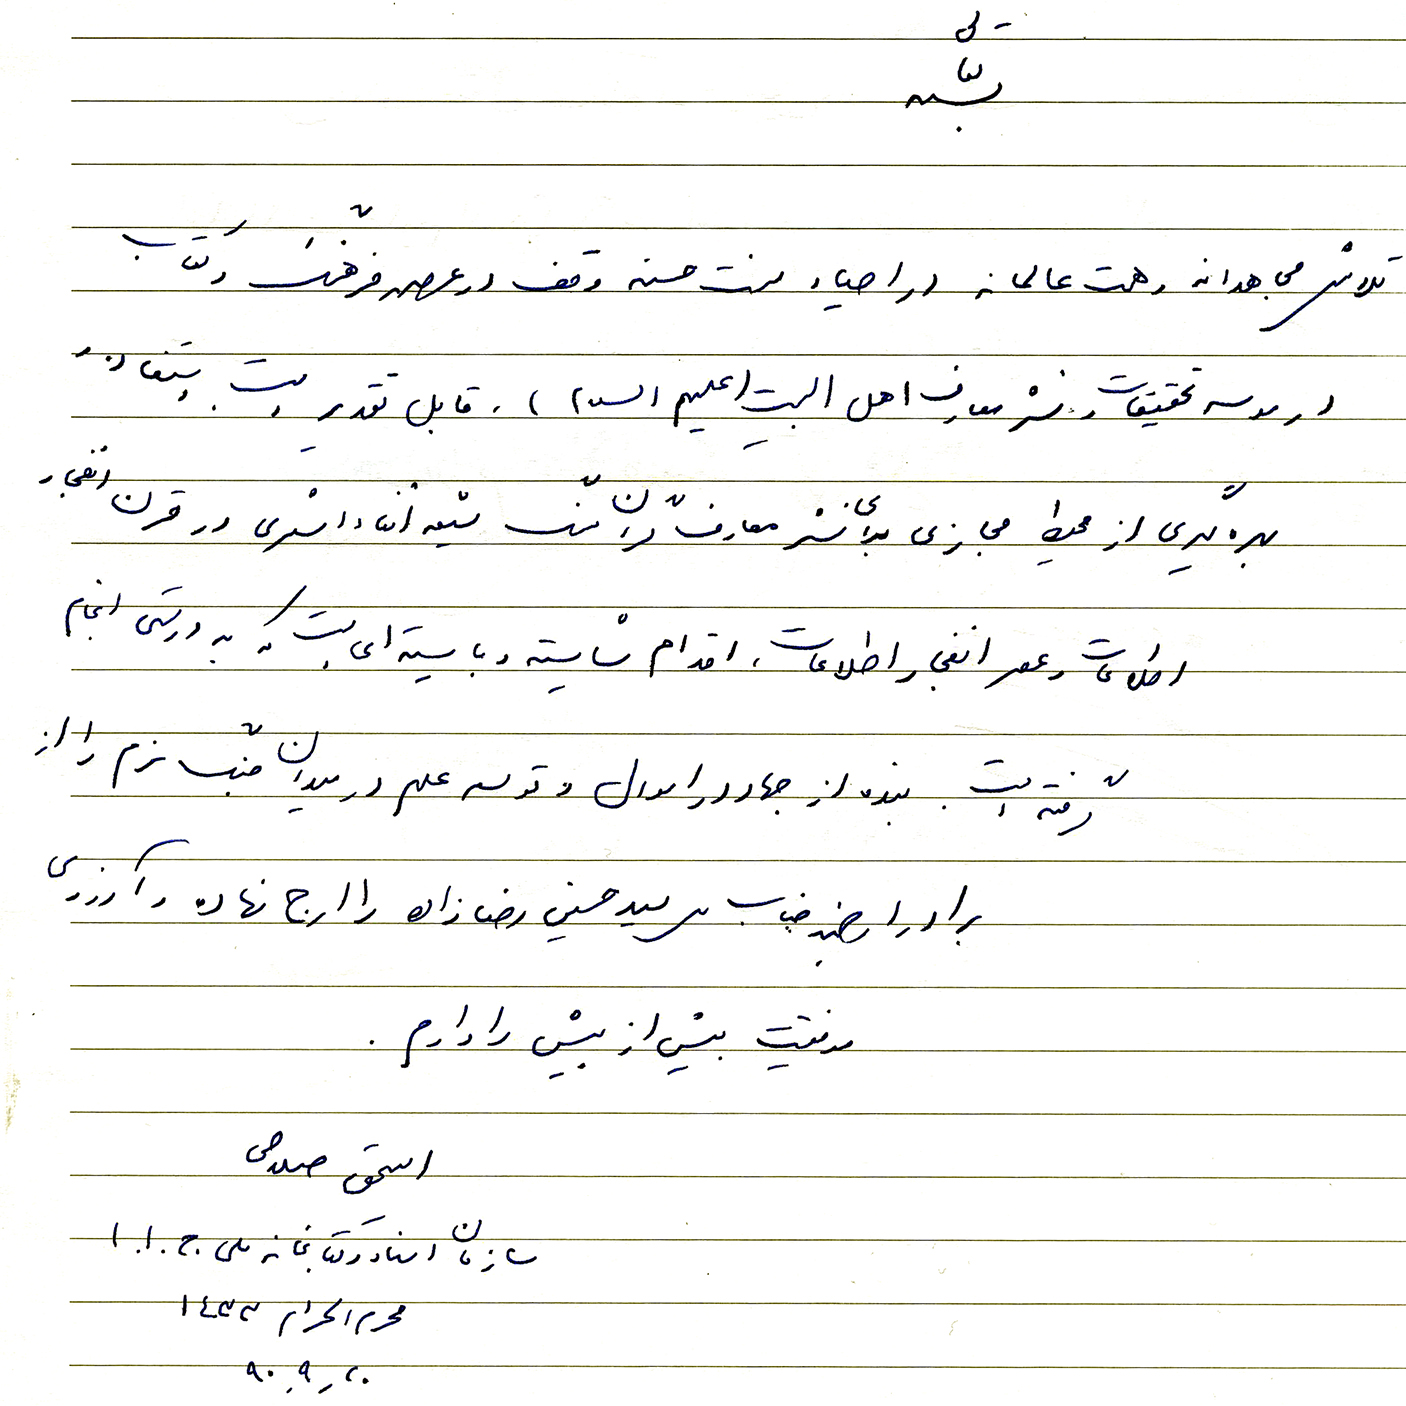 بسمه تعالی
تلاش مجاهدانه و همت عالمانه در احیاء سنت حسنه وقف در عرصه فرهنگ و کتاب
در موسسه تحقیقات و نشر معارف اهل البیت (علیهم السلام)، قابل تقدیر است. استفاده و
بهره‌گیری از محیط مجازی برای نشر معارف قرآن شیعه اثناء اشعری در قرن انفجار
اطلاعات و عصر انفجار اطلاعات، اقدام شایسته و بایسته‌ای است که به درستی انجام
گرفته است. بنده از جهاد در اموال و توسعه علم در میدان جنگ نرم را از
برادر ارجمند جناب سید حسینی رضازاده را ارج نهاده و آرزوی
موفقیت بیش از بیش را دارم.
اسحق صلاحی
سازمان اسناد و کتابخانه ملی ج.ا.ا
محرم الحرام ١٤٣٣
٩٠_٩_٢٠